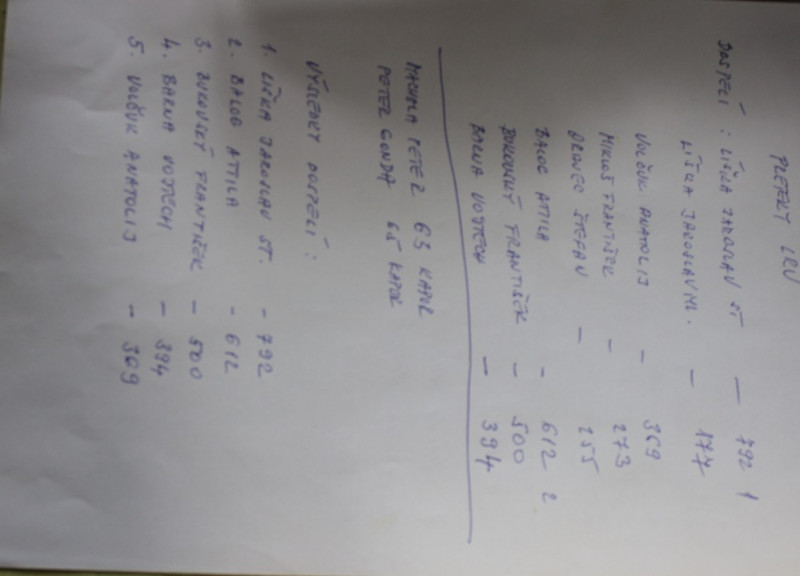 PREFEKT LRU
DOSPELÍ : LIŠKA JAROSLAV ST — 792 1
LIŠKA JAROSLAV ML. — 177
VOLČUK ANATOLIJ — 369
MIKLOŠ FRANTIŠEK — 273
ORAVEC ŠTEFAN — 255
BALOG ATTILA - 612 2
BUKOVSKÝ FRANTIŠEK — 500
BARNA VOJTECH — 394
MACHALA PETER 63 KAPOR
PETER GONDA 65 KAPOR
VÝSLEDKY DOSPELÍ :
1. LIŠKA JAROSLAV ST. - 792
2. BALOG ATTILA - 612
3. BUKOVSKÝ FRANTIŠEK — 500
4. BARNA VOJTECH — 394
5. VOLČUK ANATOLIJ — 369